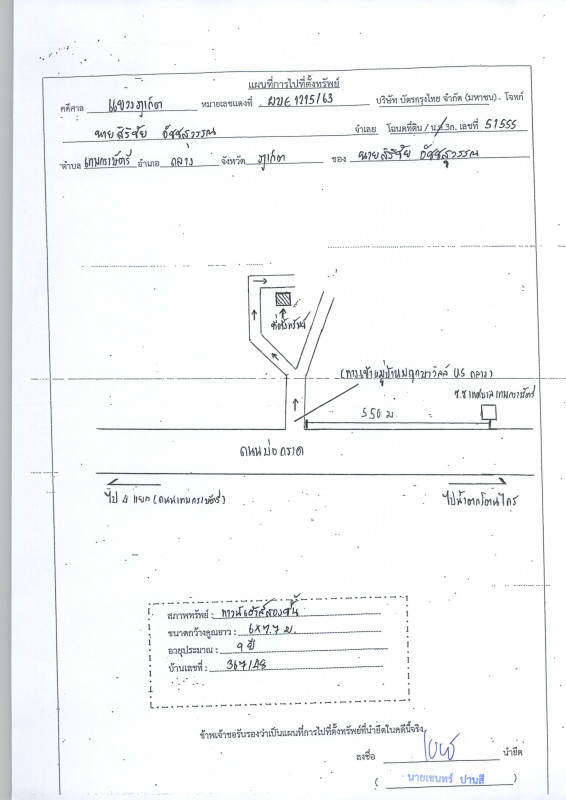 แผนที่การไปที่ตั้งทรัพย์
คดีศาล แขวงภูเก็ต หมายเลขแดงที่ ผบE 1215/63 บริษัท บัตรกรุงไทย จำกัด (มหาชน) โจทก์
นายสิริชัย อัชชสุวรรณ จำเลย โฉนดที่ดิน / น.ส.3ก. เลขที่ 51555
ตำบล เทพกระษัตรี อำเภอ ถลาง จังหวัด ภูเก็ต ของ นายสิริชัย อัชชสุวรรณ
ที่ตั้งทรัพย์
(ทางเข้าหมู่บ้านพฤกษาวิลล์ ถลาง)
เทศบาลเทพกระษัตรี
550 ม.
ถนนบ่อกรวด
ไป 4 แยก (ถนนเทพกระษัตรี)
ไปน้ำตกโตนไทร
สภาพทรัพย์ : ทาวน์เฮ้าส์สองชั้น
ขนาดกว้างคูณยาว : 6x7.7 ม.
อายุประมาณ : 9 ปี
บ้านเลขที่ : 367/48
ข้าพเจ้าขอรับรองว่าเป็นแผนที่การไปที่ตั้งทรัพย์ที่นำยึดในคดีนี้จริง
ลงชื่อ นำยึด
( นายเชนทร์ ปานสี )